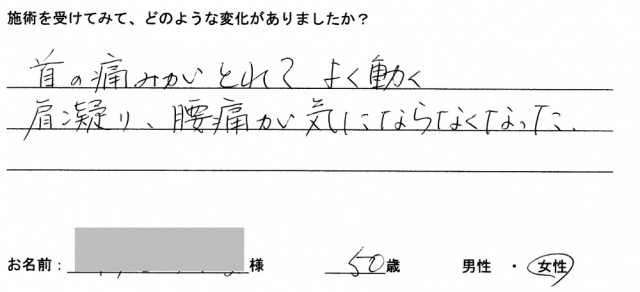 施術を受けてみて、どのような変化がありましたか？
首の痛みがとれて よく動く
肩凝り、腰痛が気にならなくなった.
お名前： 様 50歳 男性 ・ 女性